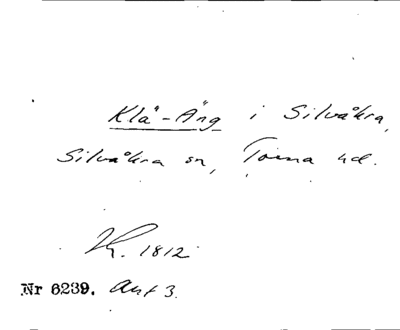 Klä-Äng i Silvåkra,
Silvåkra sn, Torna hd.
K. 1812
Nr 6239. Akt 3.